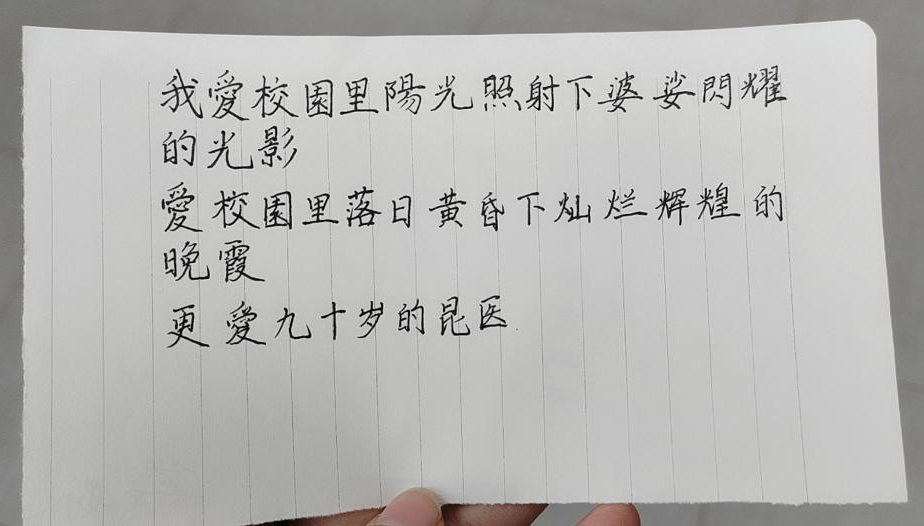 我愛校園里陽光照射下婆娑閃耀
的光影
愛校園里落日黄昏下灿烂辉煌的
晚霞
更愛九十岁的昆医